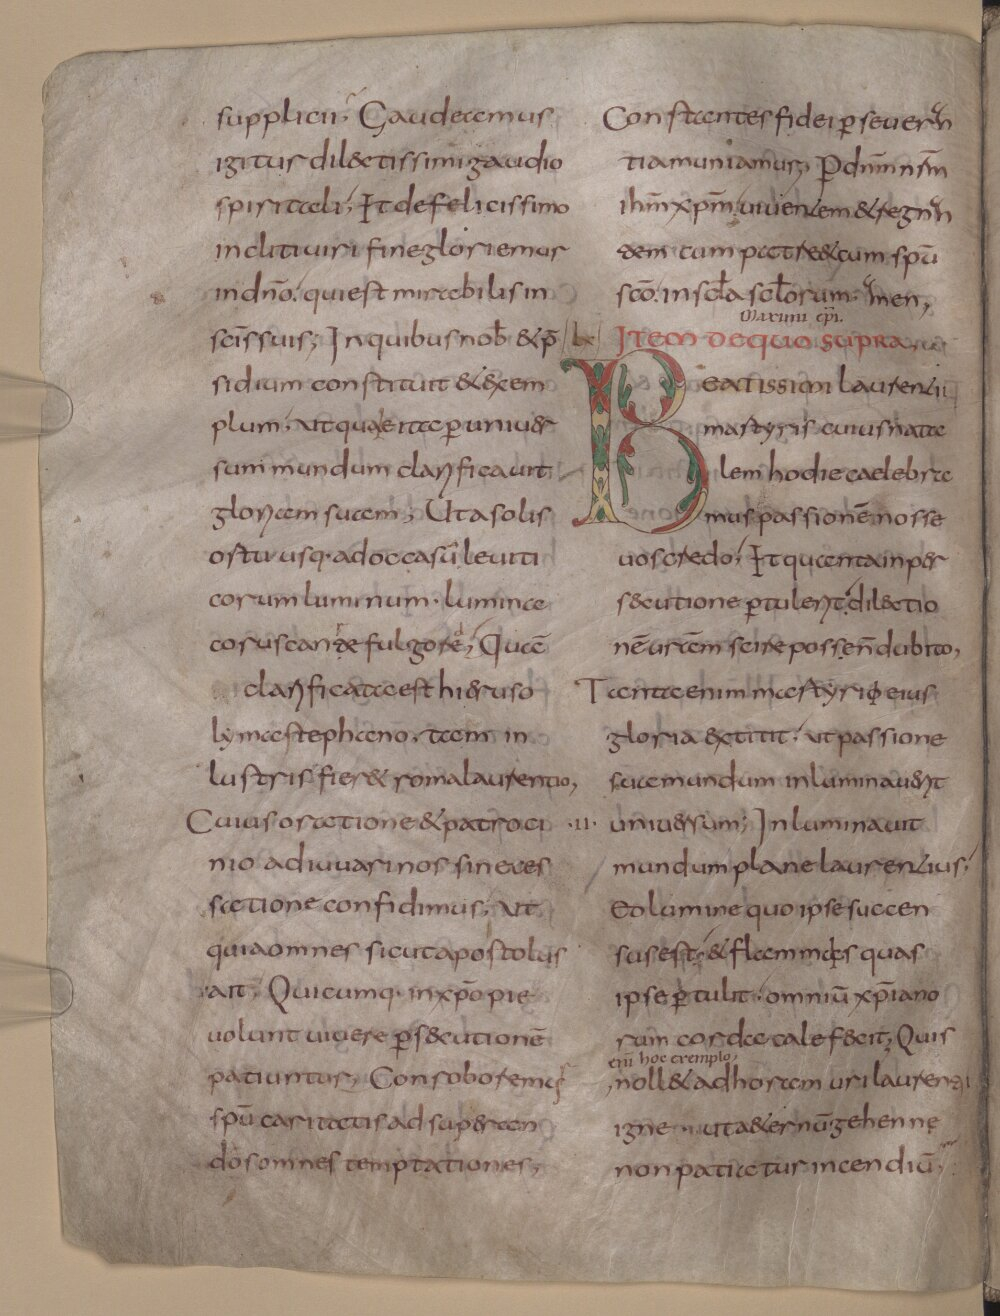 supplicii; Gaudeamus
igitur dilectissimi gaudio
spiritali; Et de felicissimo
inclitiviri fine gloriemur
in dño. qui est mirabilis in
scīs suis; In quibus nob̄ & p̄
sidium constituit & exem
plum, ut quae ita p uniuer
sum mundum clarificavit
gloriam suam; Ut a solis
ortu usq· ad occasū leuiti
corum luminum· lumina
coruscante fulgore, Quā
clarificata est hieruso
lyma stephano. tam in
lustris fier& roma laurentio,
Cuius oratione & patroci
nio adiuuari nos sine ces
satione confidimus; ut
quia omnes sicut apostolus
ait; Quicumq· in xp̄o pie
uolunt uiuere psecutionē
patiuntur, Conroboremur
spū caritatis ad superan
dos omnes temptationes,
Constantes fidei pseueran
tia muniamur, P dn̄m nr̄m
ihm̄ xpm̄ uiuentem & regnan
tem cum patre & cum spū
sc̄o. in scl̄a scl̄orum. Amen,
Maximi ep̄i.
lx Item de quo supra,
Beatissimi laurentii
martyris cuius nata
lem hodie caelebra
mus passionē nosse
uos credo, Et quanta in per
secutione ptulerit, dilectio
nē uram̄ scire possen̄ dubito,
Tanta enim martyrii eius
gloria extitit, ut passione
sua mundum inluminauerit
·II· uniuersum; Inluminauit
mundum plane laurentius,
Eo lumine quo ipse succen
sus est, & flammis quas
ipse ptulit· omniū xp̄iano
rum corda calefecit, Quis
eni hoc exemplo,
noll& ad horam uri laurenti
igne· ut aeternū gehenne
non patiatur incendiū,